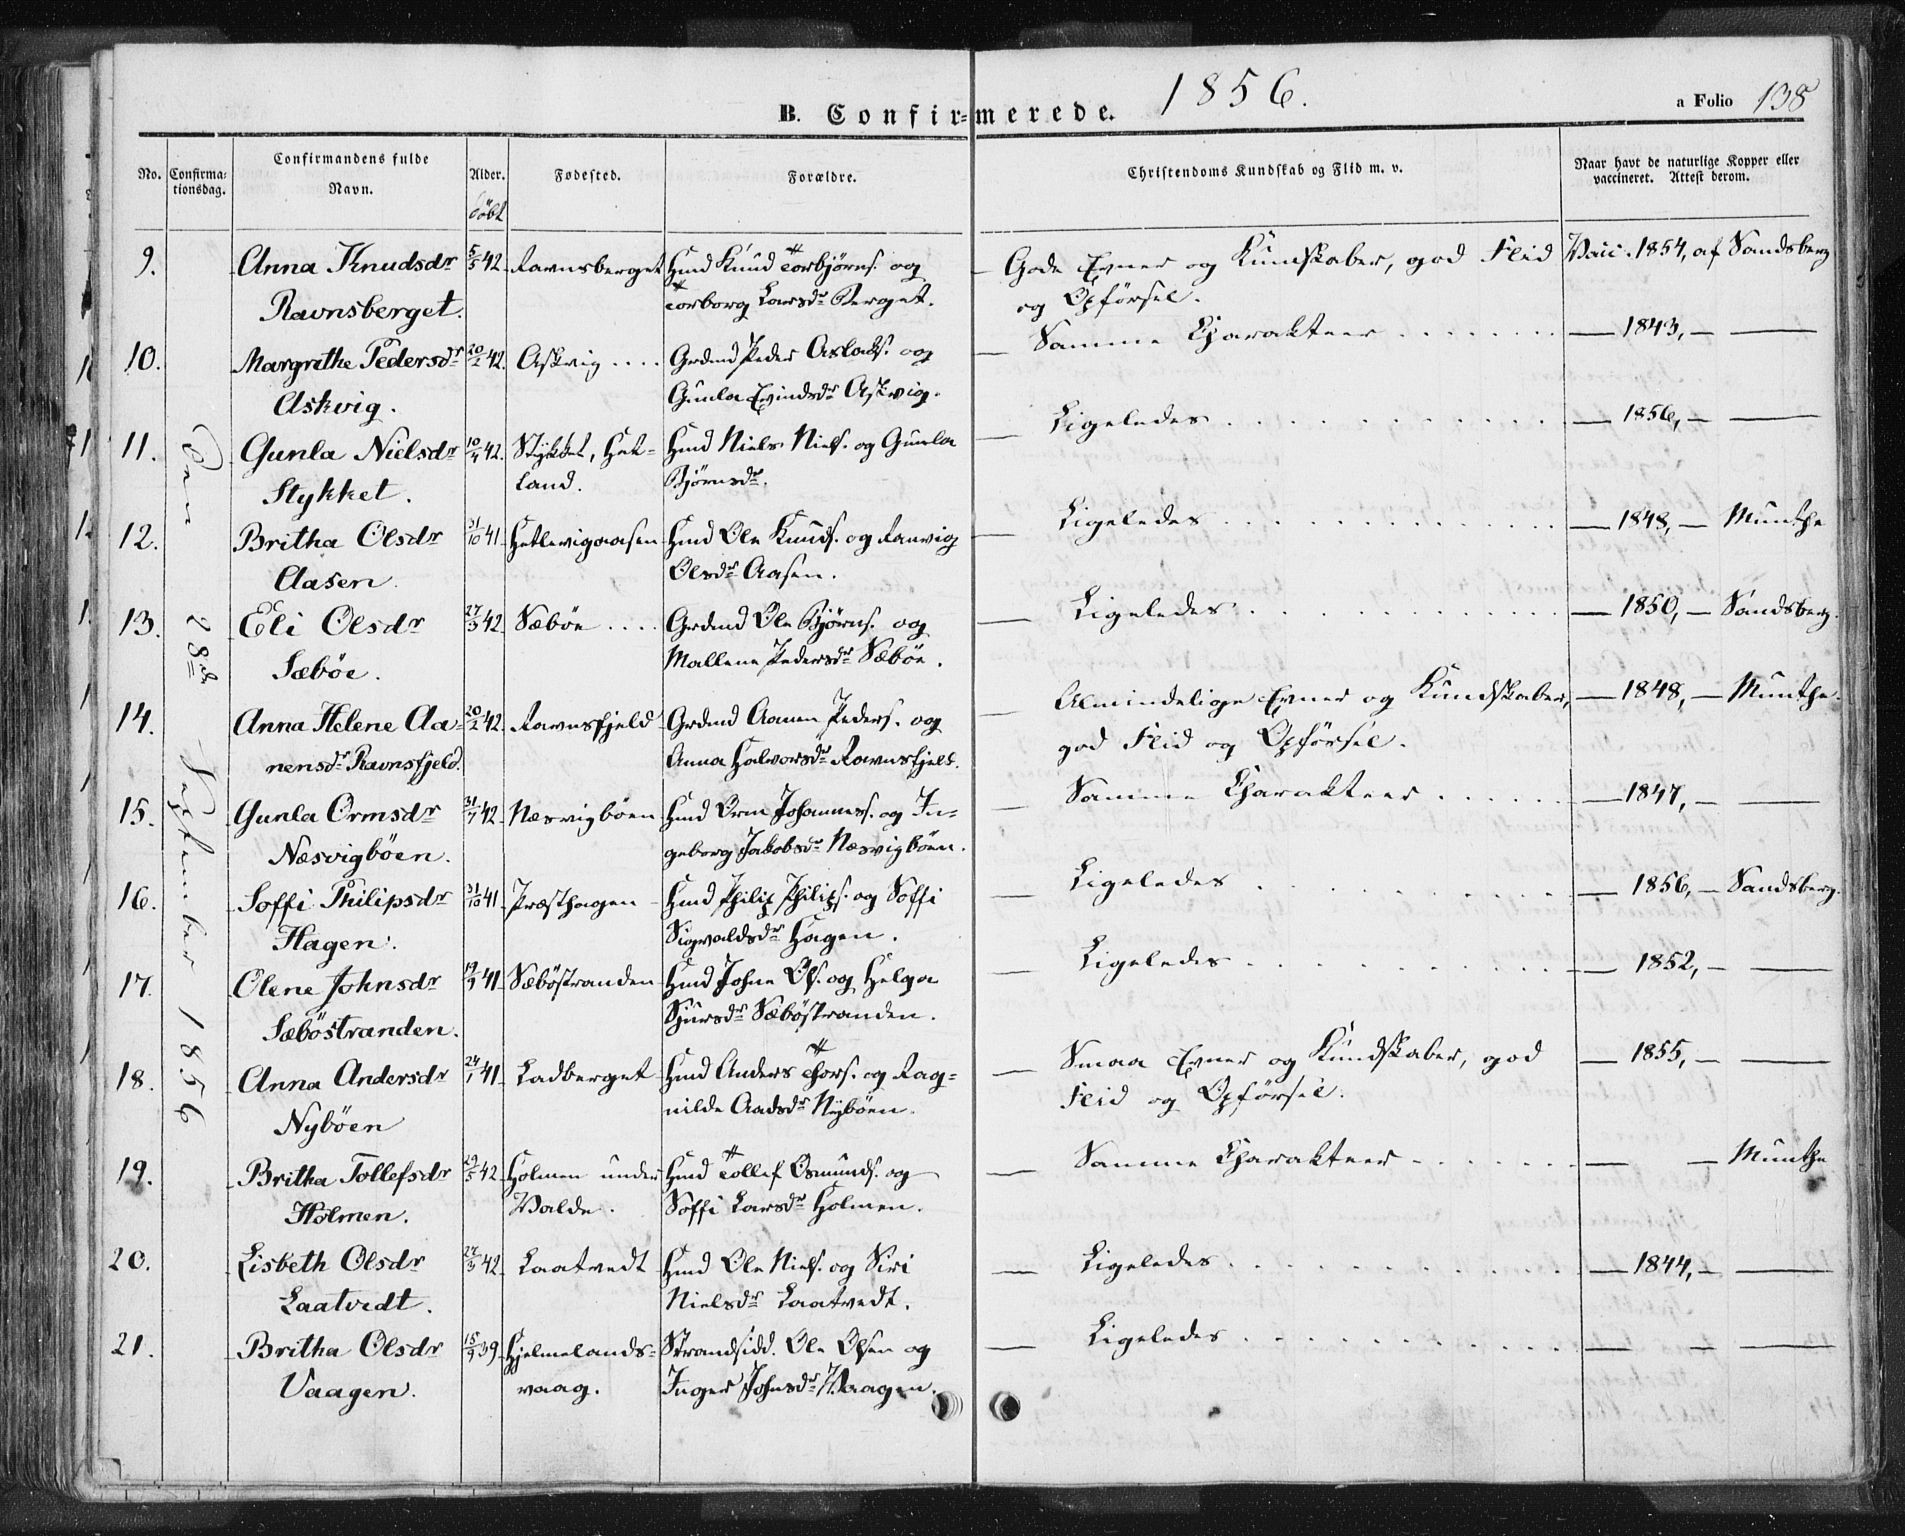 1856.
B. Confirmerede.
a Folio 138
No.
Confirma-
tionsdag.
Confirmandens fulde
Navn.
Alder.
Döbt
Fødested.
Forældre.
Christendoms Kundskab og Flid m. v.
Naar havt de naturlige Kopper eller
vaccineret. Attest derom.
Den 28de September 1856
9. Anna Knudsdr 5/5 42. Ravnsberget Hmd Knud Torbjörns. og — Gode Evner og Kundskaber, god Flid Vacc. 1854, af Sandsberg
Ravnsberget. Torborg Larsdr Berget. og Opförsel.
10. Margrethe Pedersdr 20/2 42. Askvig .... Grdmd Peder Aslaks. og — Samme Charakteer ....... — 1843, — —
Askvig. Gunla Evindsdr Askvig.
11. Gunla Nielsdr 10/4 42. Stykket, Het- Hmd Niels Niels. og Gunla — Ligeledes ............ — 1856, — —
Stykket. land. Björnsdr.
12. Britha Olsdr 31/10 41 Hetlevigaasen Hmd Ole Knuds. og Ranvig — Ligeledes ............ — 1848, — Munthe
Aasen. Olsdr Aasen.
13. Eli Olsdr 27/3 42 Sæböe .... Grdmd Ole Björns. og — Ligeledes ............ — 1850, — Sandsberg.
Sæböe. Mallene Pedersdr Sæböe.
14. Anna Helene Aa- 20/2 42. Ravnsfjeld Grdmd Aanen Peders. og — Almindelige Evner og Kundskaber, — 1848, — Munthe.
nensdr Ravnsfjeld. Anna Halvorsdr Ravnsfjeld. god Flid og Opförsel.
15. Gunla Ormsdr 31/7 42 Næsvigböen Hmd Orm Johanness. og In- — Samme Charakteer ...... — 1847, — —
Næsvigböen. geborg Jakobsdr Næsvigböen.
16. Soffi Philipsdr 31/10 41 Præsthagen Hmd Philip Philips. og Soffi — Ligeledes .......... — 1856, — Sandsberg.
Hagen. Sigvaldsdr Hagen.
17. Olene Johnsdr 19/9 41 Sæböstranden Hmd Johne Ols. og Helga — Ligeledes .......... — 1852, — —
Sæböstranden. Sjursdr Sæböstranden.
18. Anna Andersdr 24/1 41 Ladberget Hmd Anders Thors. og Rag- — Smaa Evner og Kundskaber, god — 1855, — —
Nyböen nilde Aadsdr Nyböen. Flid og Opförsel.
19. Britha Tollefsdr 29/5 42 Holmen under Hmd Tollef Osmunds. og — Samme Charakteer ...... — — Munthe
Holmen. Valde. Soffi Larsdr Holmen.
20. Lisbeth Olsdr 24/3 42 Laatvedt Hmd Ole Niels. og Siri — Ligeledes ........... — 1844, — —
Laatvedt. Nielsdr Laatvedt.
21. Britha Olsdr 15/9 39 Hjelmelands- Strandsidd. Ole Olsen og — Ligeledes .......... — — —
Vaagen. vaag. Inger Johnsdr Vaagen.